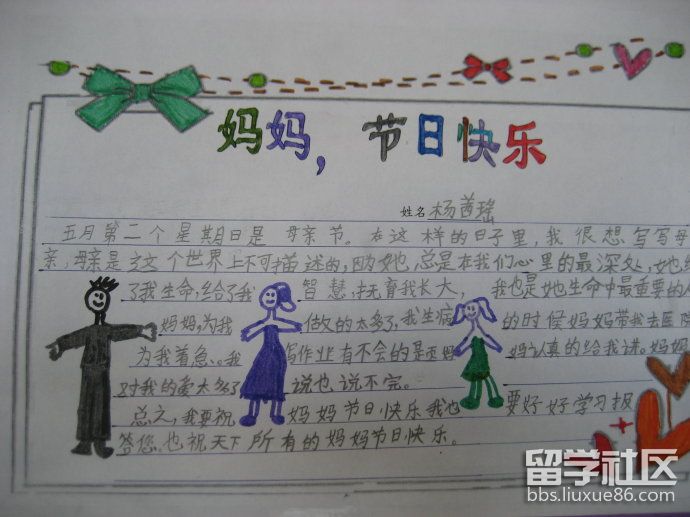 妈妈，节日快乐
姓名 杨茜瑶
五月第二个星期日是母亲节。在这样的日子里，我很想写写母
亲，母亲是这个世界上不可描述的，因为她总是在我们心里的最深处，她给
了我生命，给了我智慧，抚育我长大，我也是她生命中最重要的人
妈妈，为我做的太多了，我生病的时候妈妈带我去医院
为我着急。我写作业有不会的是妈妈认真的给我讲。妈妈
对我的爱太多了说也说不完。
总之，我要祝妈妈节日快乐我也要好好学习报
答您。也祝天下所有的妈妈节日快乐。
留学社区
bbs.liuxue86.com